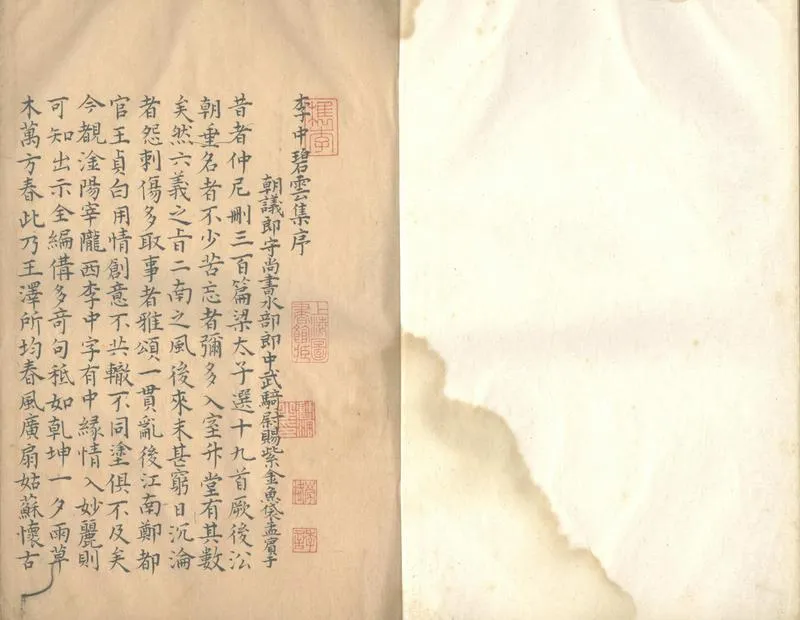 李中碧雲集序
朝議郎守尚書水部郎中武騎尉賜紫金魚袋孟賓于
昔者仲尼刪三百篇梁太子選十九首厥後㳂
朝垂名者不少苦忘者彌多入室升堂有其數
矣然六義之旨二南之風後來末甚窮日沉淪
者怨刺傷多取事者雅頌一貫亂後江南鄭都
官王貞白用情創意不共轍不同塗俱不及矣
今覩淦陽宰隴西李中字有中緣情入妙麗則
可知出示全編備多奇句秪如乾坤一夕雨草
木萬方春此乃王澤所均春風廣扇姑蘇懷古
上海圖書館藏